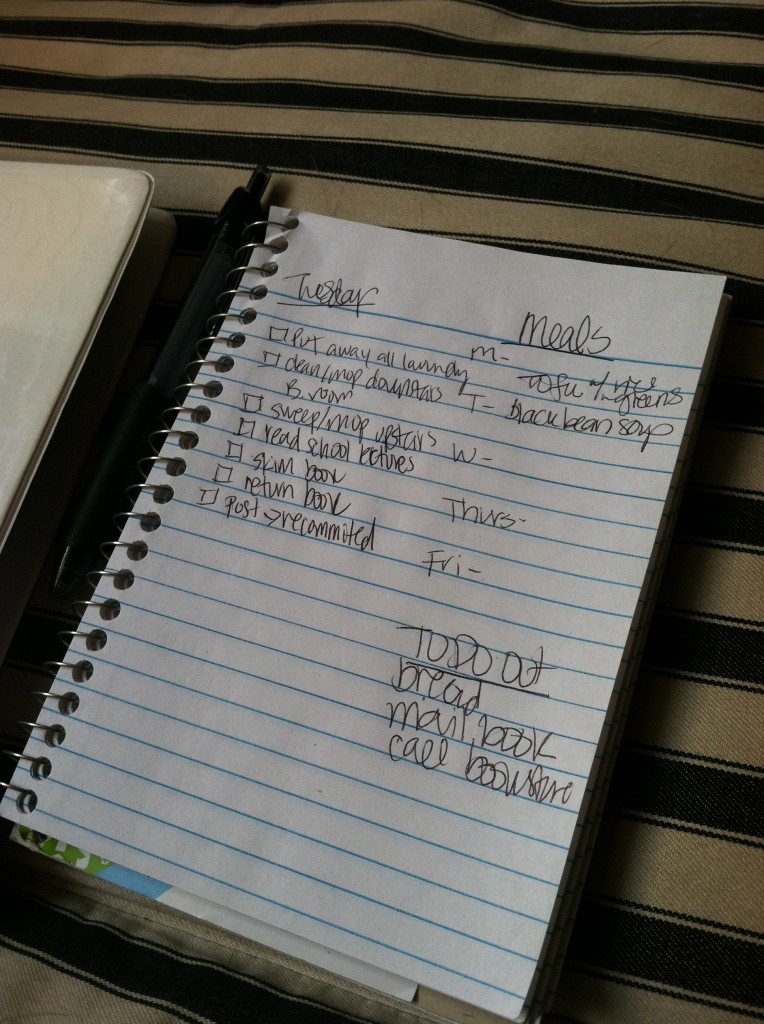 Tuesday
Put away all laundry
clean/mop downstairs
B. room
sweep/mop upstairs
read school lectures
skim book
return book
Post → recommited
Meals
M-
Tofu w/ rice
n greens
T- black bean soup
W-
Thurs-
Fri-
TO DO Out
bread
mail book
call bookstore